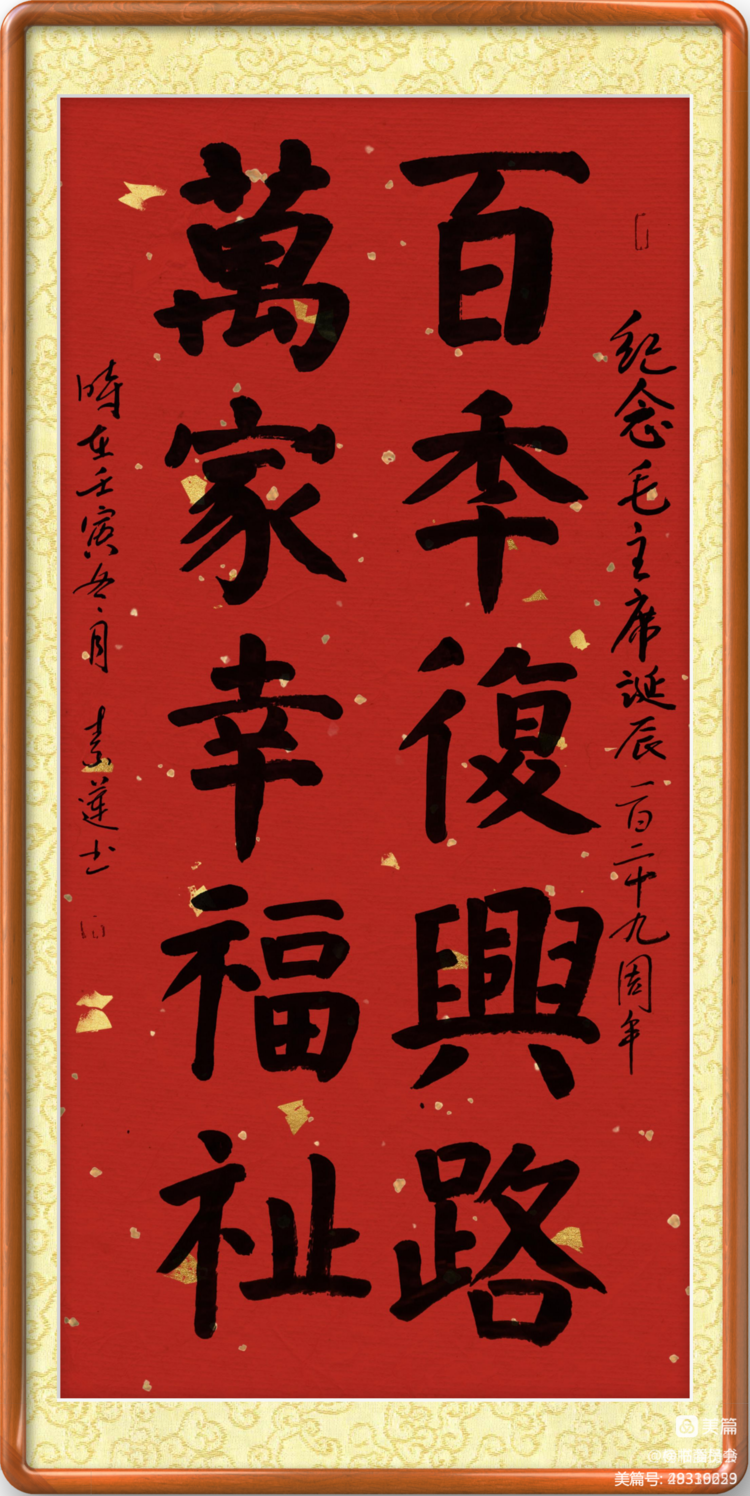 纪念毛主席誕辰一百二十九周年
百季復興路
萬家幸福祉
時在壬寅冬月 素莲书
美篇
美篇号: